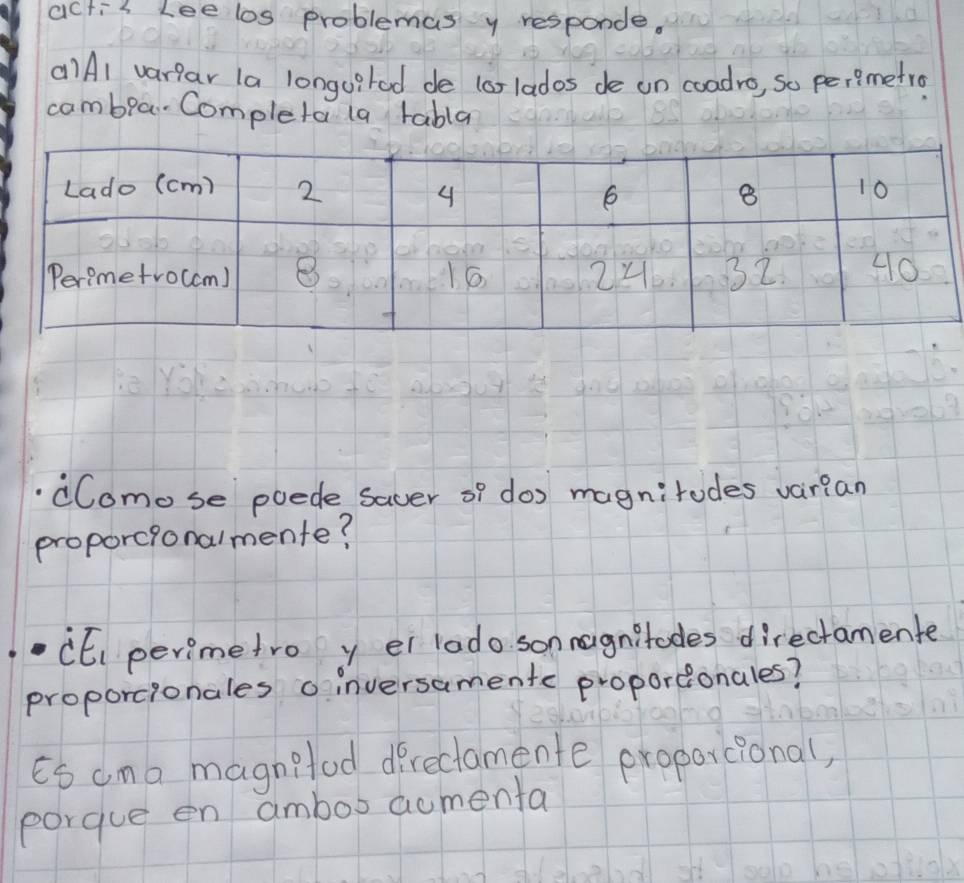 acti2 Lee los problemas y responde.
a) Al variar la longuitud de los lados de un cuadro, su perimetro
cambia. Completa la tabla
Lado (cm) 2 4 6 8 10
Perimetro(cm) 8 16 24 32 40
• ¿Como se puede saver si dos magnitudes varian
proporcionalmente?
• ¿El perimetro y el lado son magnitudes directamente
proporcionales o inversamente proporcionales?
Es una magnitud directamente proporcional,
porque en ambos aumenta